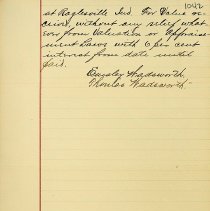 1042
at Raglesville Ind. For Value re-
ceived, without any relief what
ever from Valuation or Appraise-
ment Laws with 6 per cent
interest from date until
paid.
Beasley Wadsworth
Thomas Wadsworth